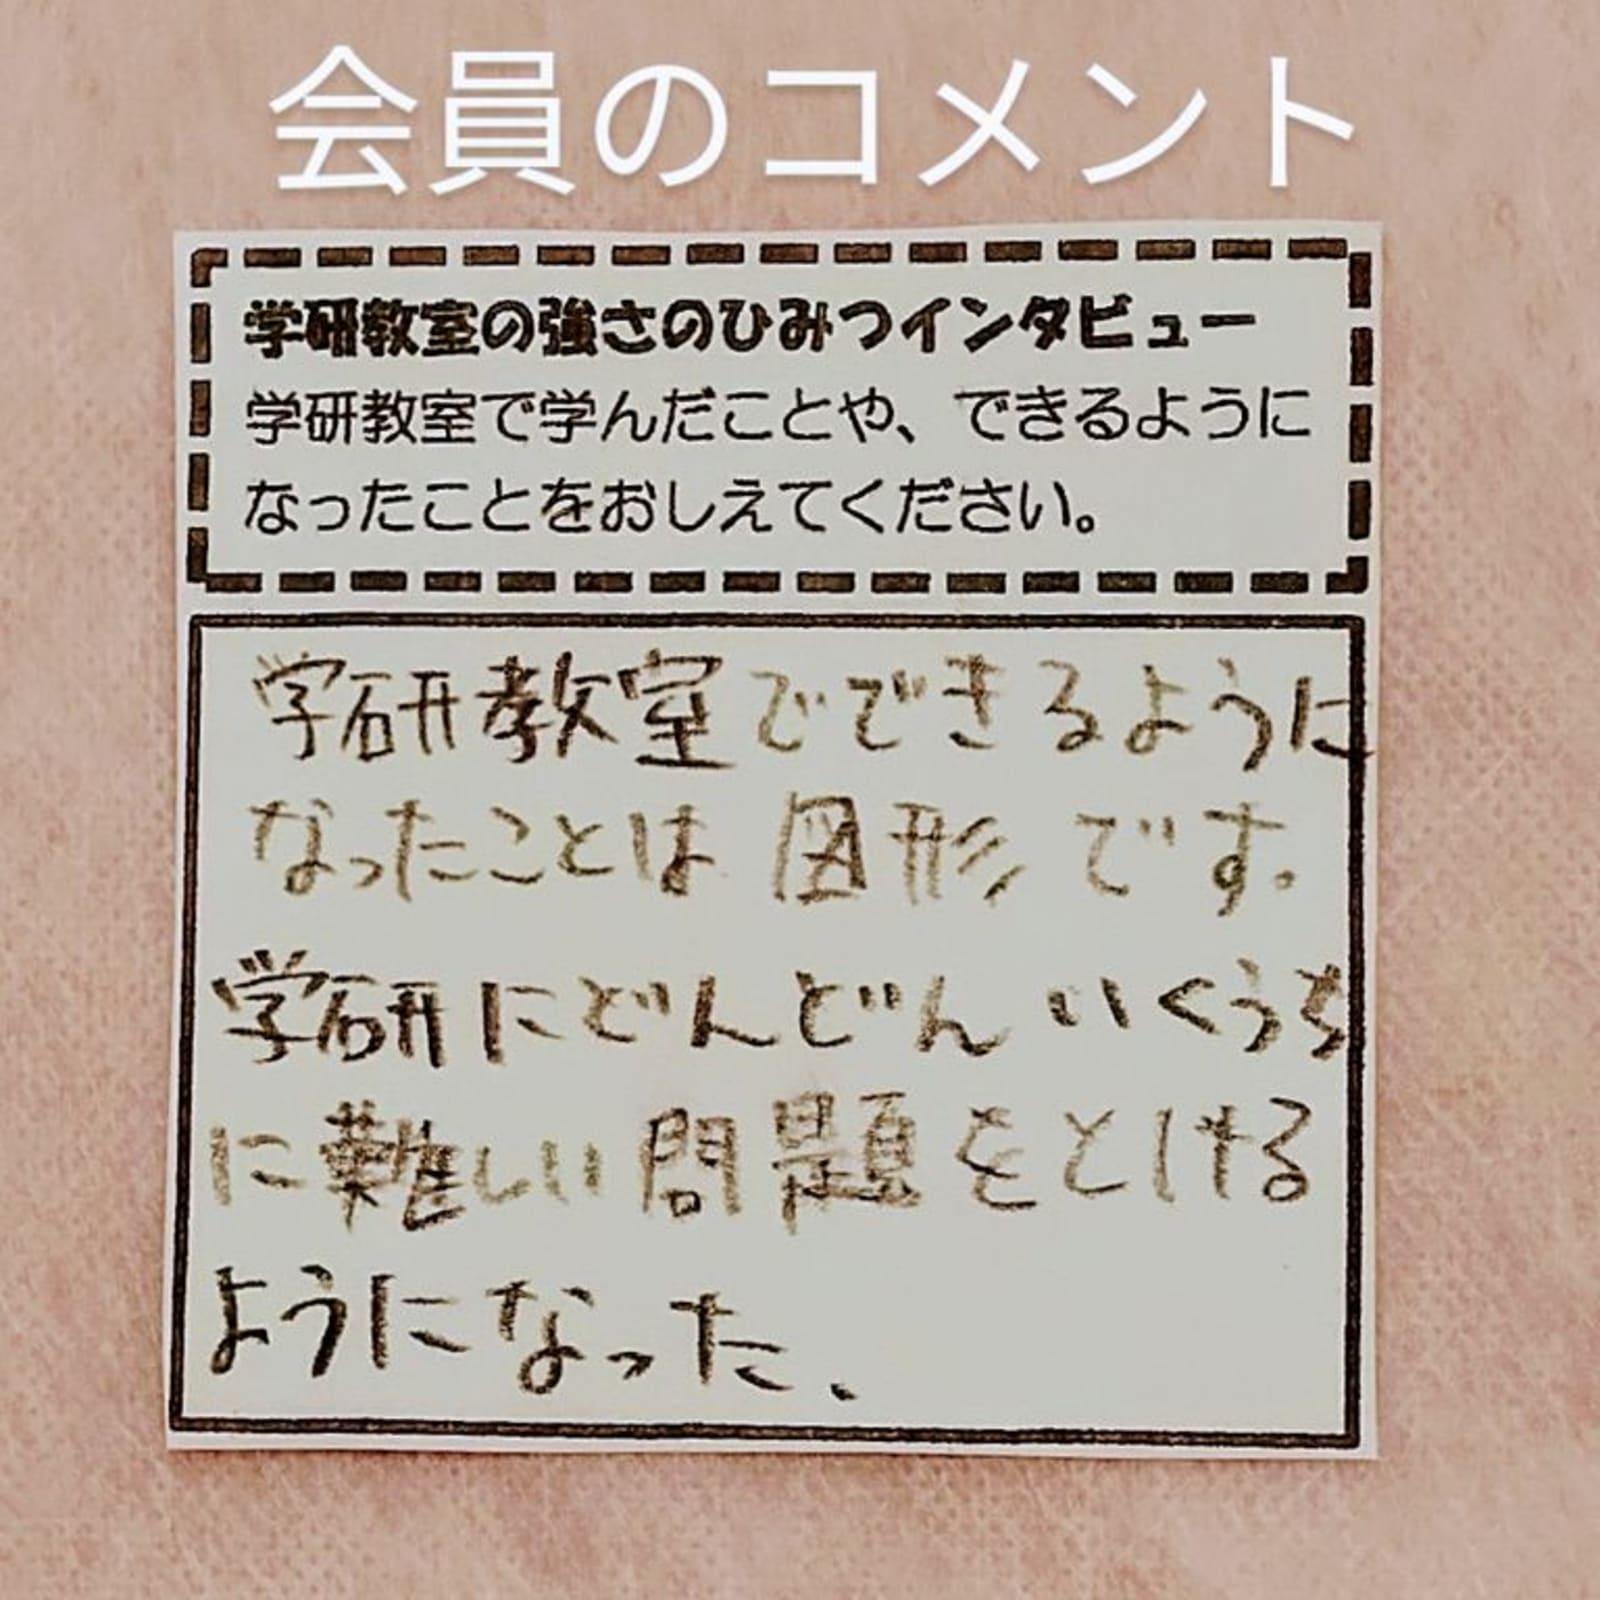 会員のコメント
学研教室の強さのひみつインタビュー
学研教室で学んだことや、できるように
なったことをおしえてください。
学研教室でできるように
なったことは図形です。
学研にどんどんいくうち
に難しい問題をとける
ようになった、